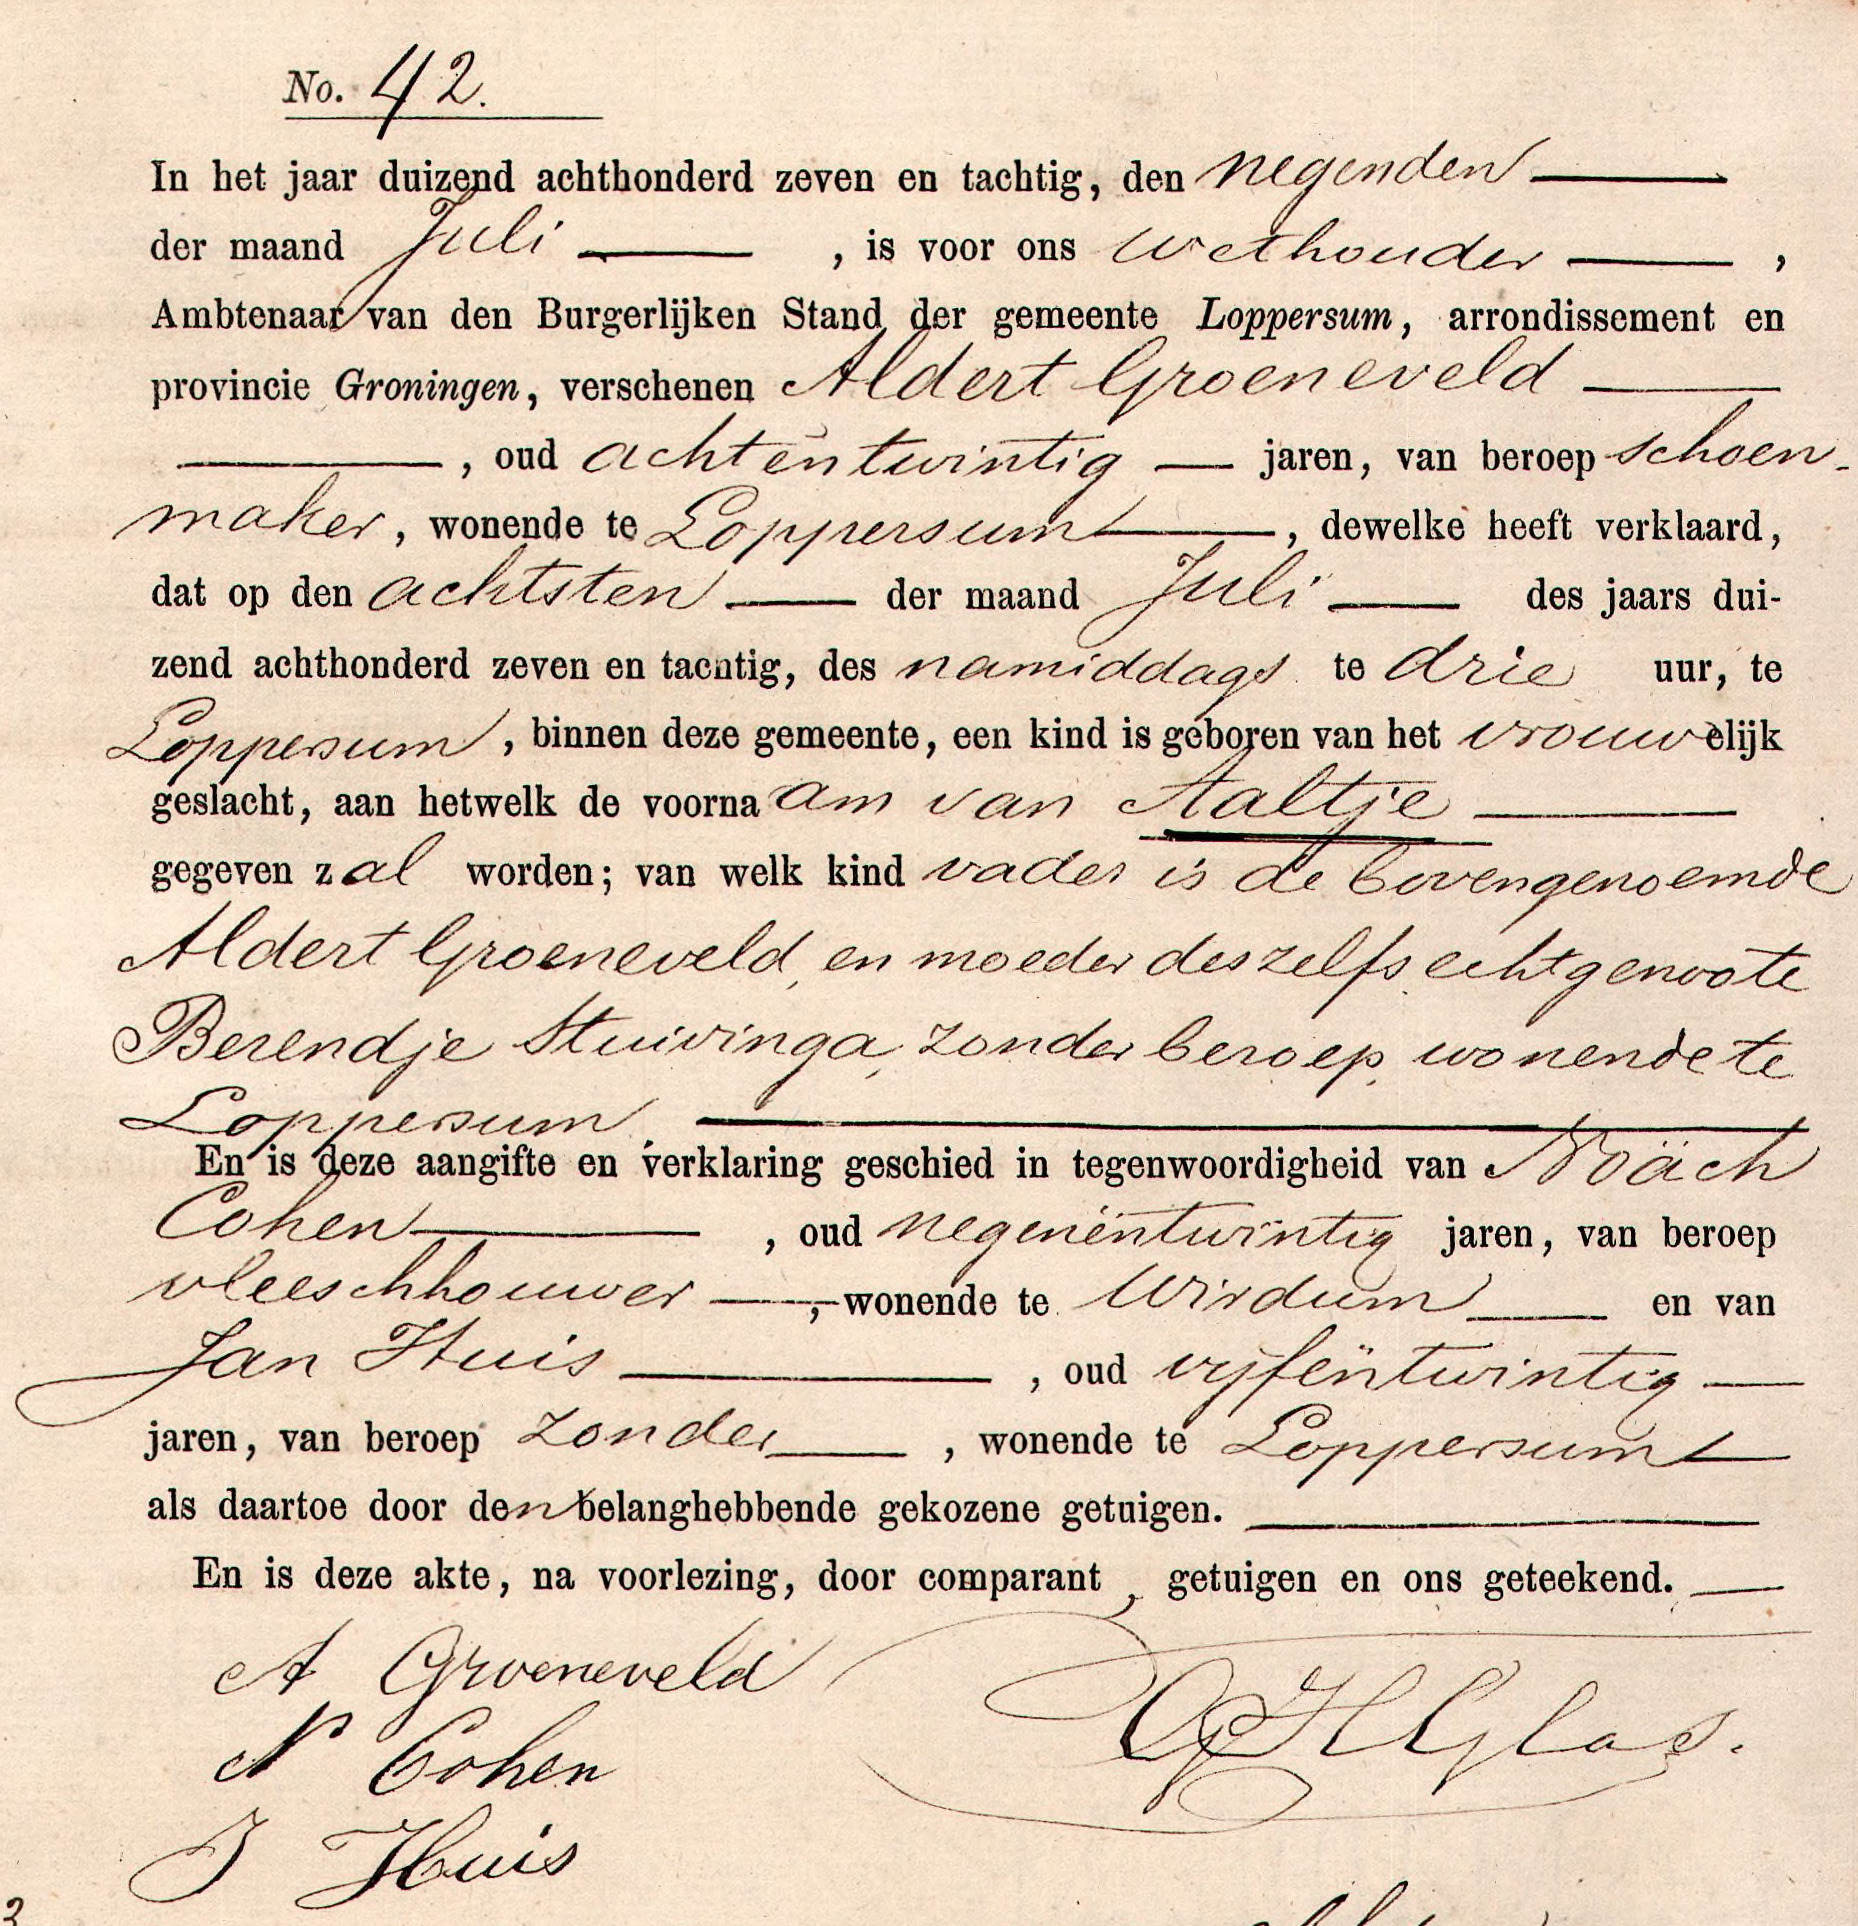 No. 42.
In het jaar duizend achthonderd zeven en tachtig, den negenden
der maand Juli , is voor ons wethouder ,
Ambtenaar van den Burgerlijken Stand der gemeente Loppersum, arrondissement en
provincie Groningen, verschenen Aldert Groeneveld
, oud achtentwintig jaren, van beroep schoen-
maker, wonende te Loppersum , dewelke heeft verklaard,
dat op den achtsten der maand Juli des jaars dui-
zend achthonderd zeven en tachtig, des namiddags te drie uur, te
Loppersum, binnen deze gemeente, een kind is geboren van het vrouwelijk
geslacht, aan hetwelk de voornaam van Aaltje
gegeven zal worden; van welk kind vader is de bovengenoemde
Aldert Groeneveld, en moeder deszelfs echtgenoote
Berendje Stuivinga, zonder beroep, wonende te
Loppersum.
En is deze aangifte en verklaring geschied in tegenwoordigheid van Noäch
Cohen , oud negenëntwintig jaren, van beroep
vleeschhouwer , wonende te Wirdum en van
Jan Huis , oud vijfëntwintig
jaren, van beroep zonder , wonende te Loppersum
als daartoe door den belanghebbende gekozene getuigen.
En is deze akte, na voorlezing, door comparant, getuigen en ons geteekend.
A Groeneveld
N Cohen
J Huis
Glas.
3